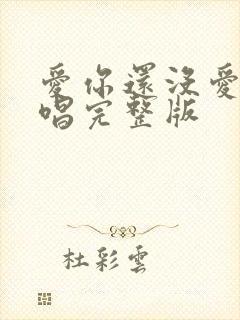 愛你還沒愛
唱完整版
杜彩雲